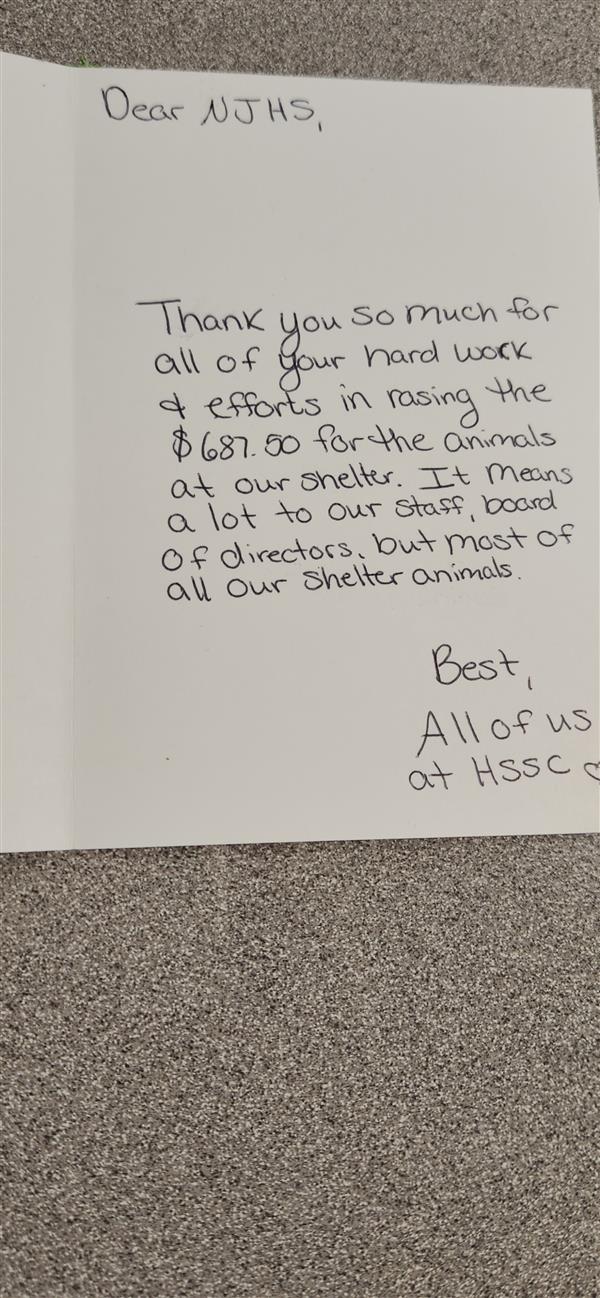 Dear NJHS,
Thank you so much for
all of your hard work
& efforts in rasing the
$687.50 for the animals
at our shelter. It means
a lot to our staff, board
of directors, but most of
all our shelter animals.
Best,
All of us
at HSSC ♡